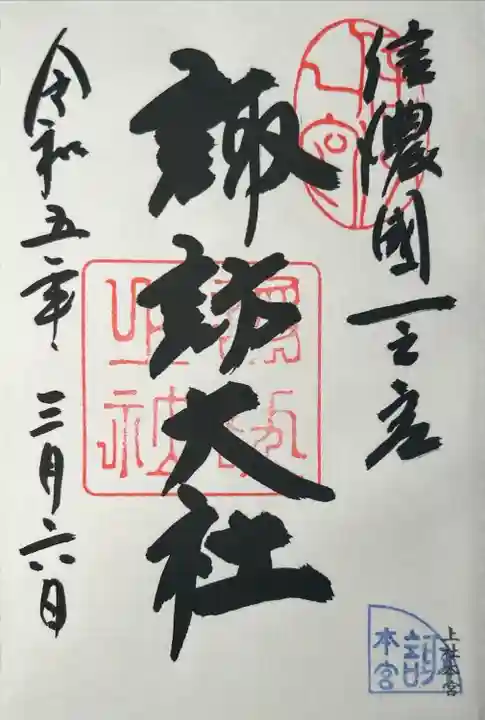 信濃國一之宮
諏訪大社
令和五年三月六日
上社本宮
本宮